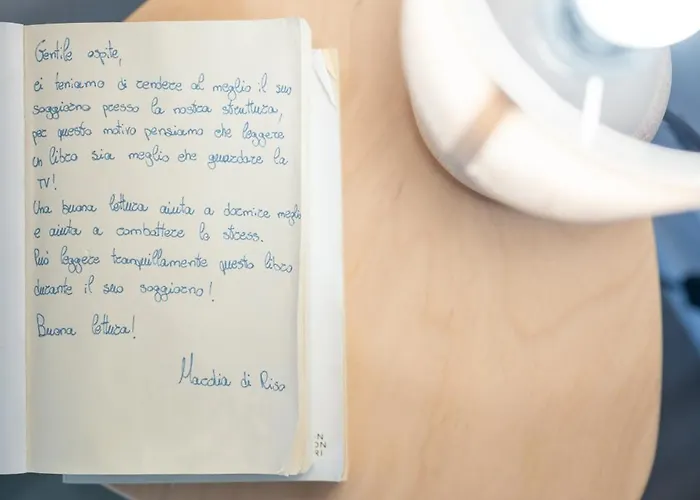 Gentile ospite,
ci teniamo di rendere al meglio il suo
soggiorno presso la nostra struttura,
per questo motivo pensiamo che leggere
un libro sia meglio che guardare la
TV!
Una buona lettura aiuta a dormire meglio
e aiuta a combattere lo stress.
Può leggere tranquillamente questo libro
durante il suo soggiorno!
Buona lettura!
Macdia di Riso
N
ON
RI